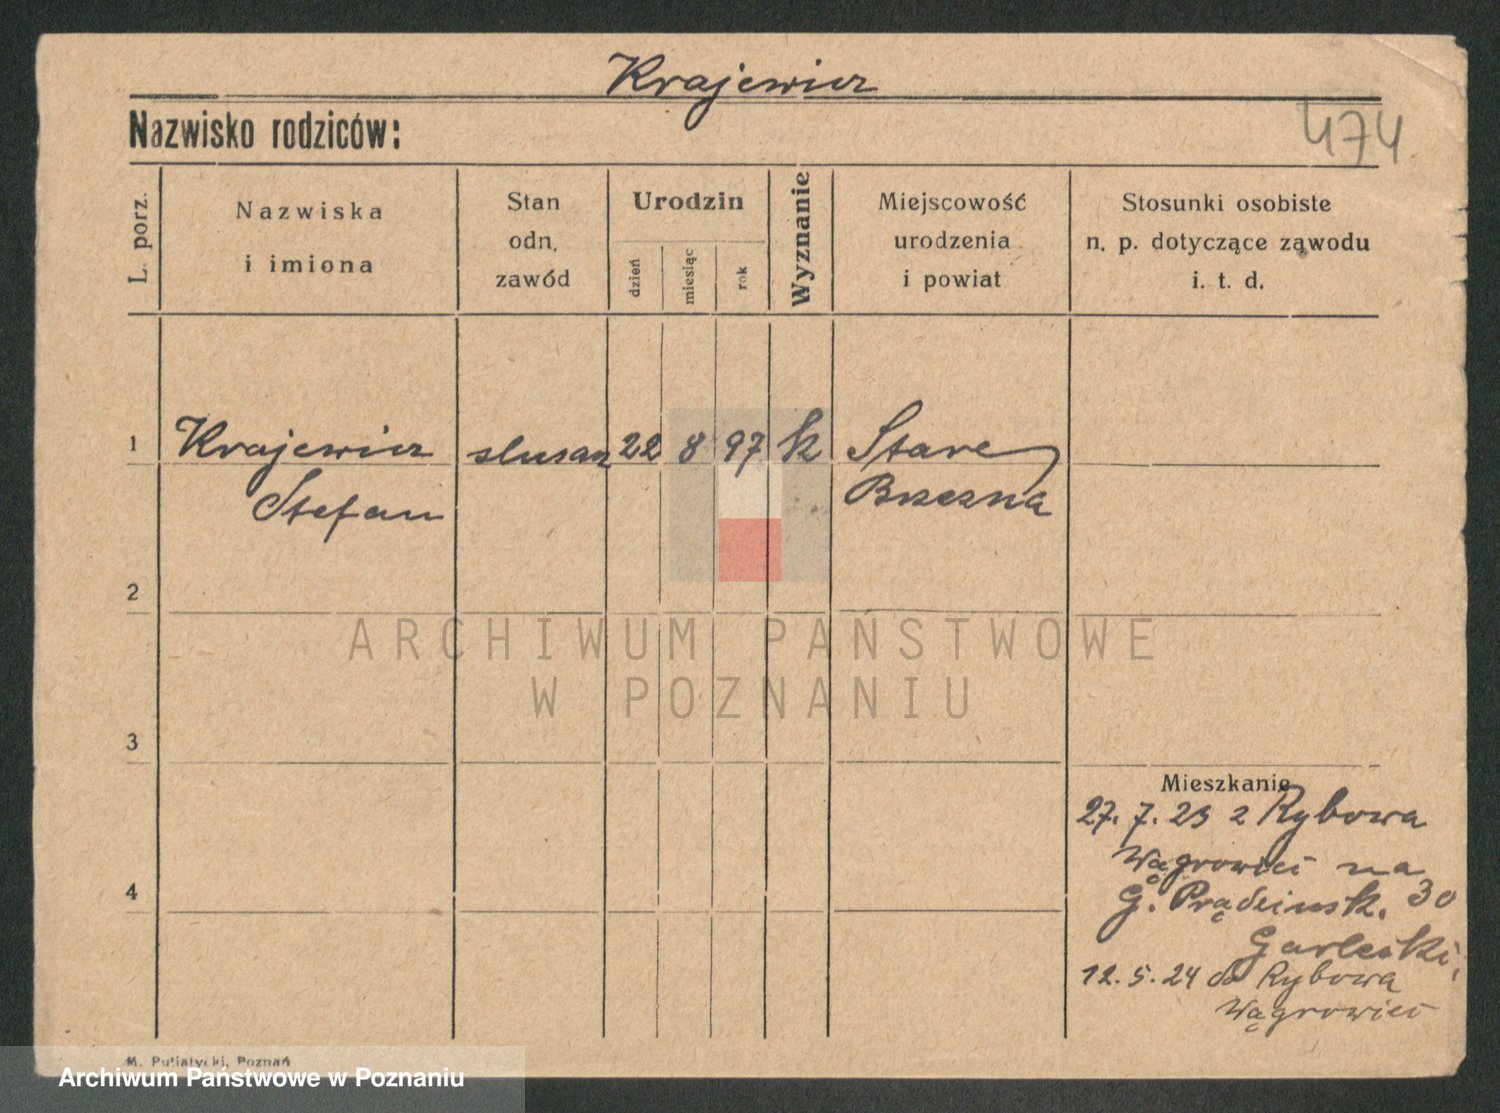 Krajewicz
474
Nazwisko rodziców:
L. porz.
Nazwiska
i imiona
Stan
odn.
zawód
Urodzin
dzień
miesiąc
rok
Wyznanie
Miejscowość
urodzenia
i powiat
Stosunki osobiste
n. p. dotyczące zawodu
i. t. d.
1 Krajewicz slusarz 22 8 97 k Stare
Stefan Brzezna
2
ARCHIWUM PAŃSTWOWE
W POZNANIU
3
Mieszkanie
27. 7. 23 z Rybowa
Wągrowiec na
4
G. Prądzinsk. 30
12. 5. 24 do Rybowa
Wągrowiec
M. Putiatycki, Poznań
Archiwum Państwowe w Poznaniu